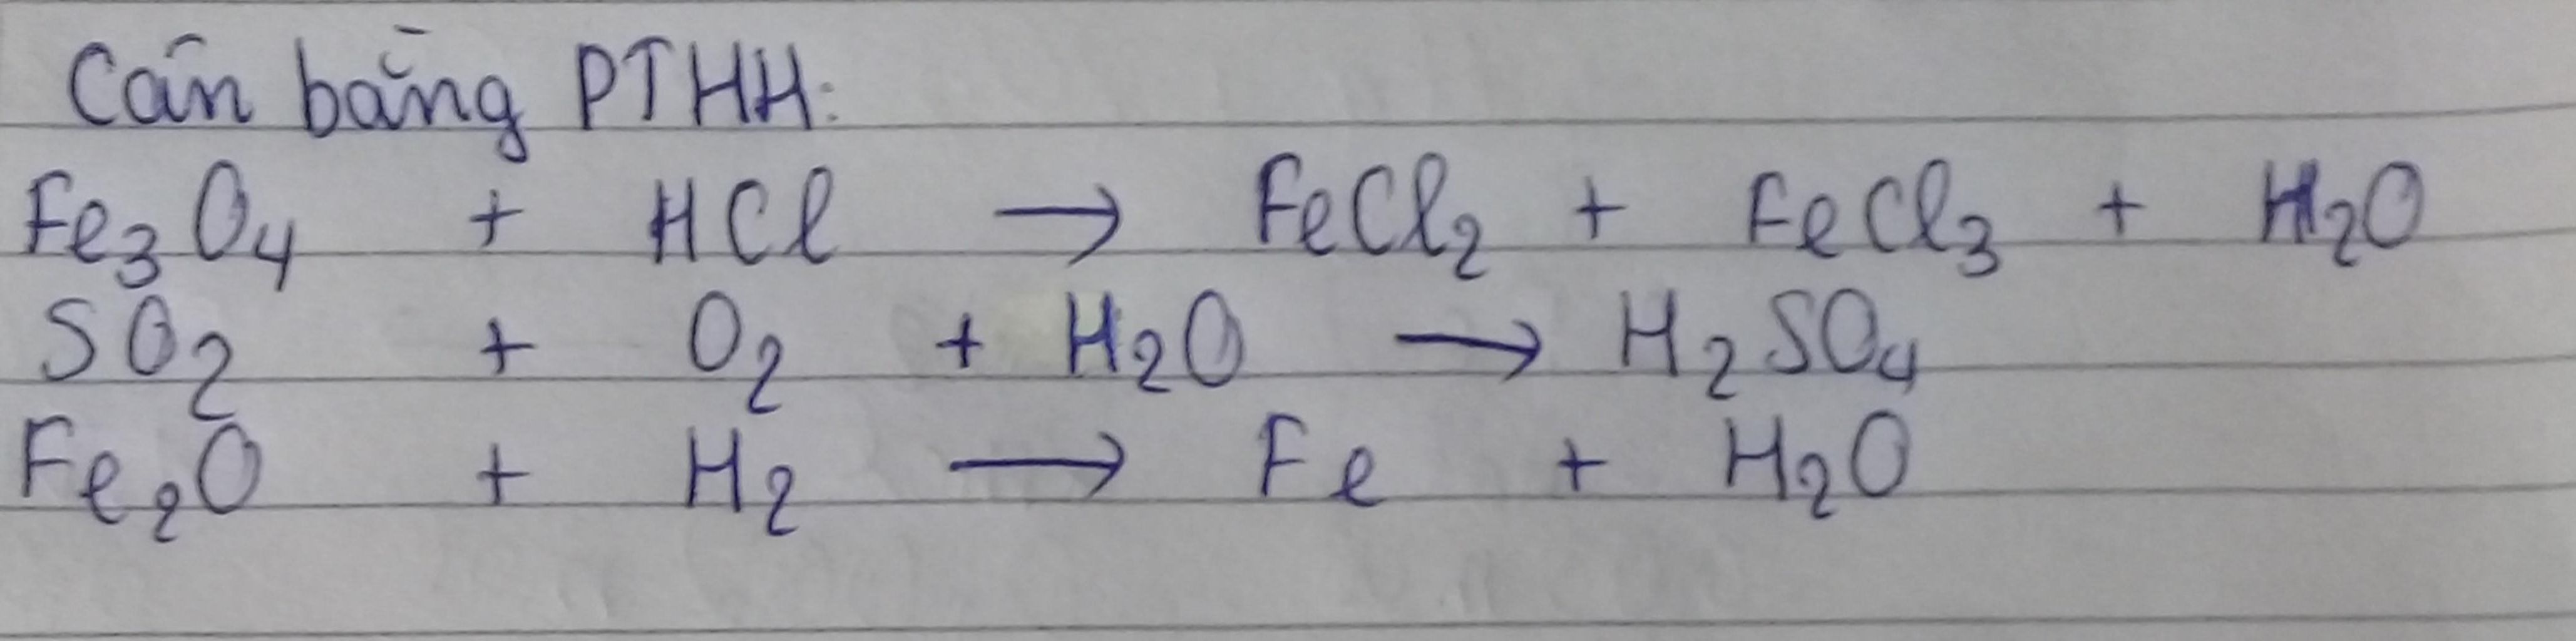 Cân bằng PTHH:
Fe₃O₄ + HCl → FeCl₂ + FeCl₃ + H₂O
SO₂ + O₂ + H₂O → H₂SO₄
Fe₂O + H₂ → Fe + H₂O